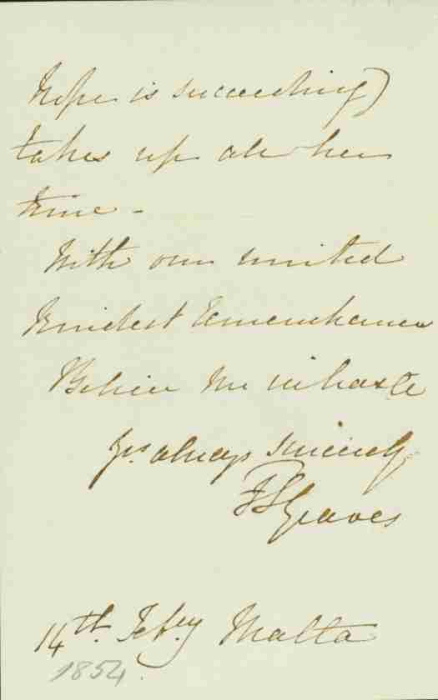 is succeeding)
takes up all her
time -
With our united
kindest remembrances
Believe me in haste
Yrs always sincerely
Graves
14th Feby Malta
1854.